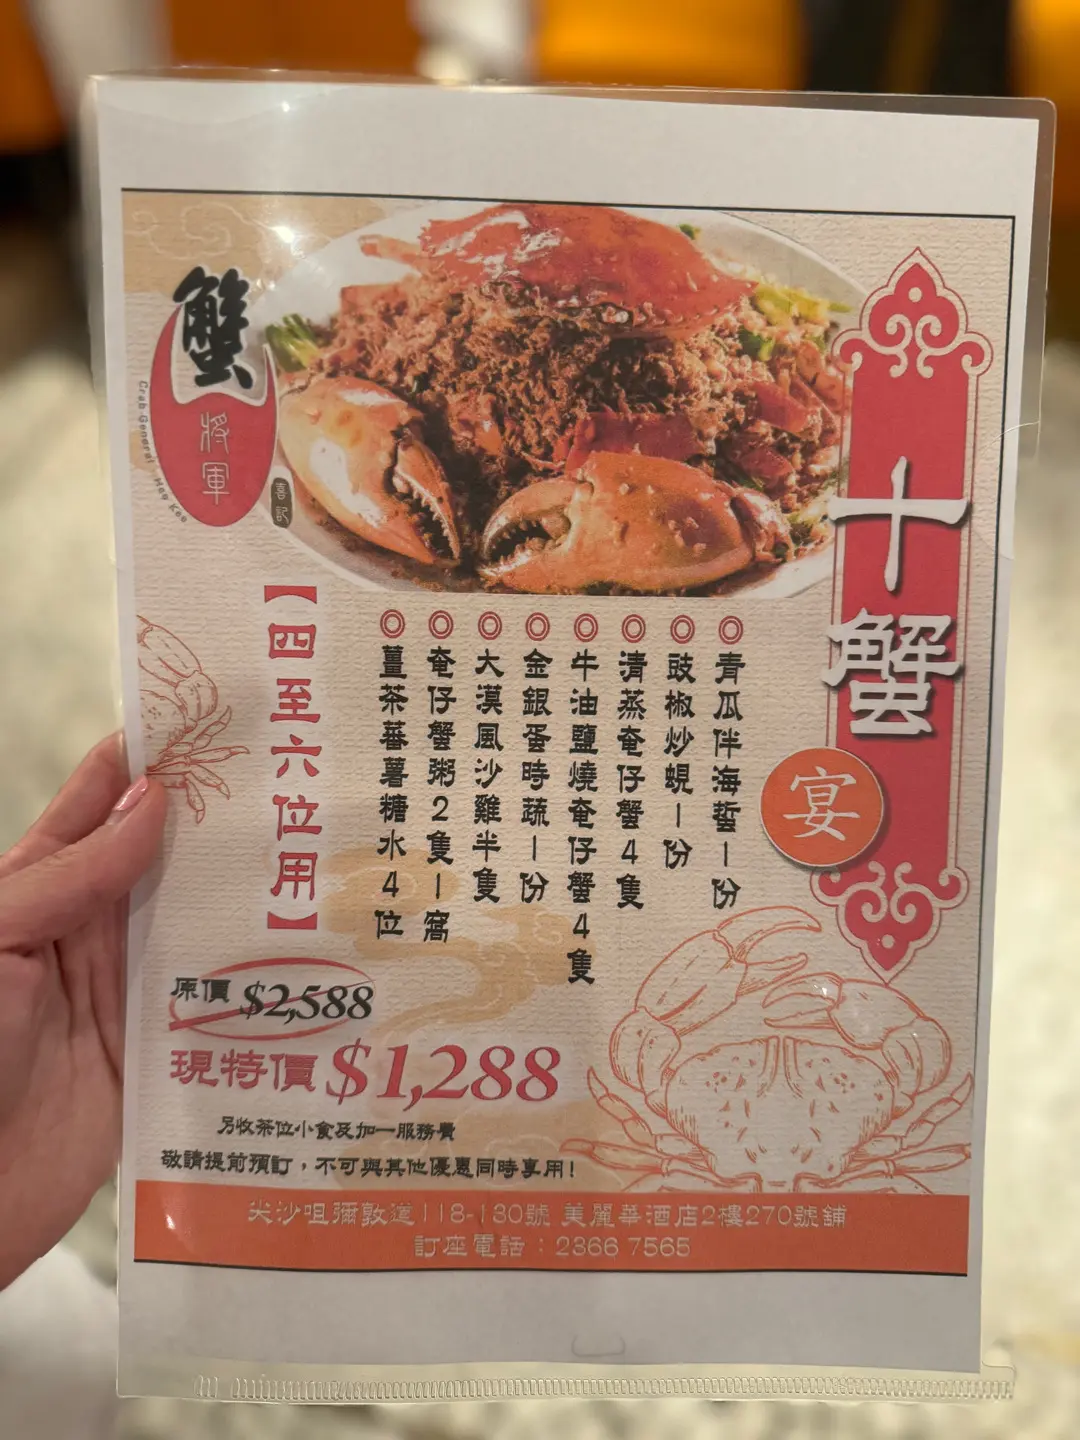 蟹
將軍
喜記
Crab General · Hee Kee
十蟹
宴
◎青瓜伴海蜇一份
◎豉椒炒蜆一份
◎清蒸奄仔蟹4隻
◎牛油鹽燒奄仔蟹4隻
◎金銀蛋時蔬一份
◎大漠風沙雞半隻
◎奄仔蟹粥2隻一窩
◎薑茶蕃薯糖水4位
【四至六位用】
原價 $2,588
現特價 $1,288
另收茶位小食及加一服務費
敬請提前預訂，不可與其他優惠同時享用!
尖沙咀彌敦道118-130號 美麗華酒店2樓270號舖
訂座電話：2366 7565